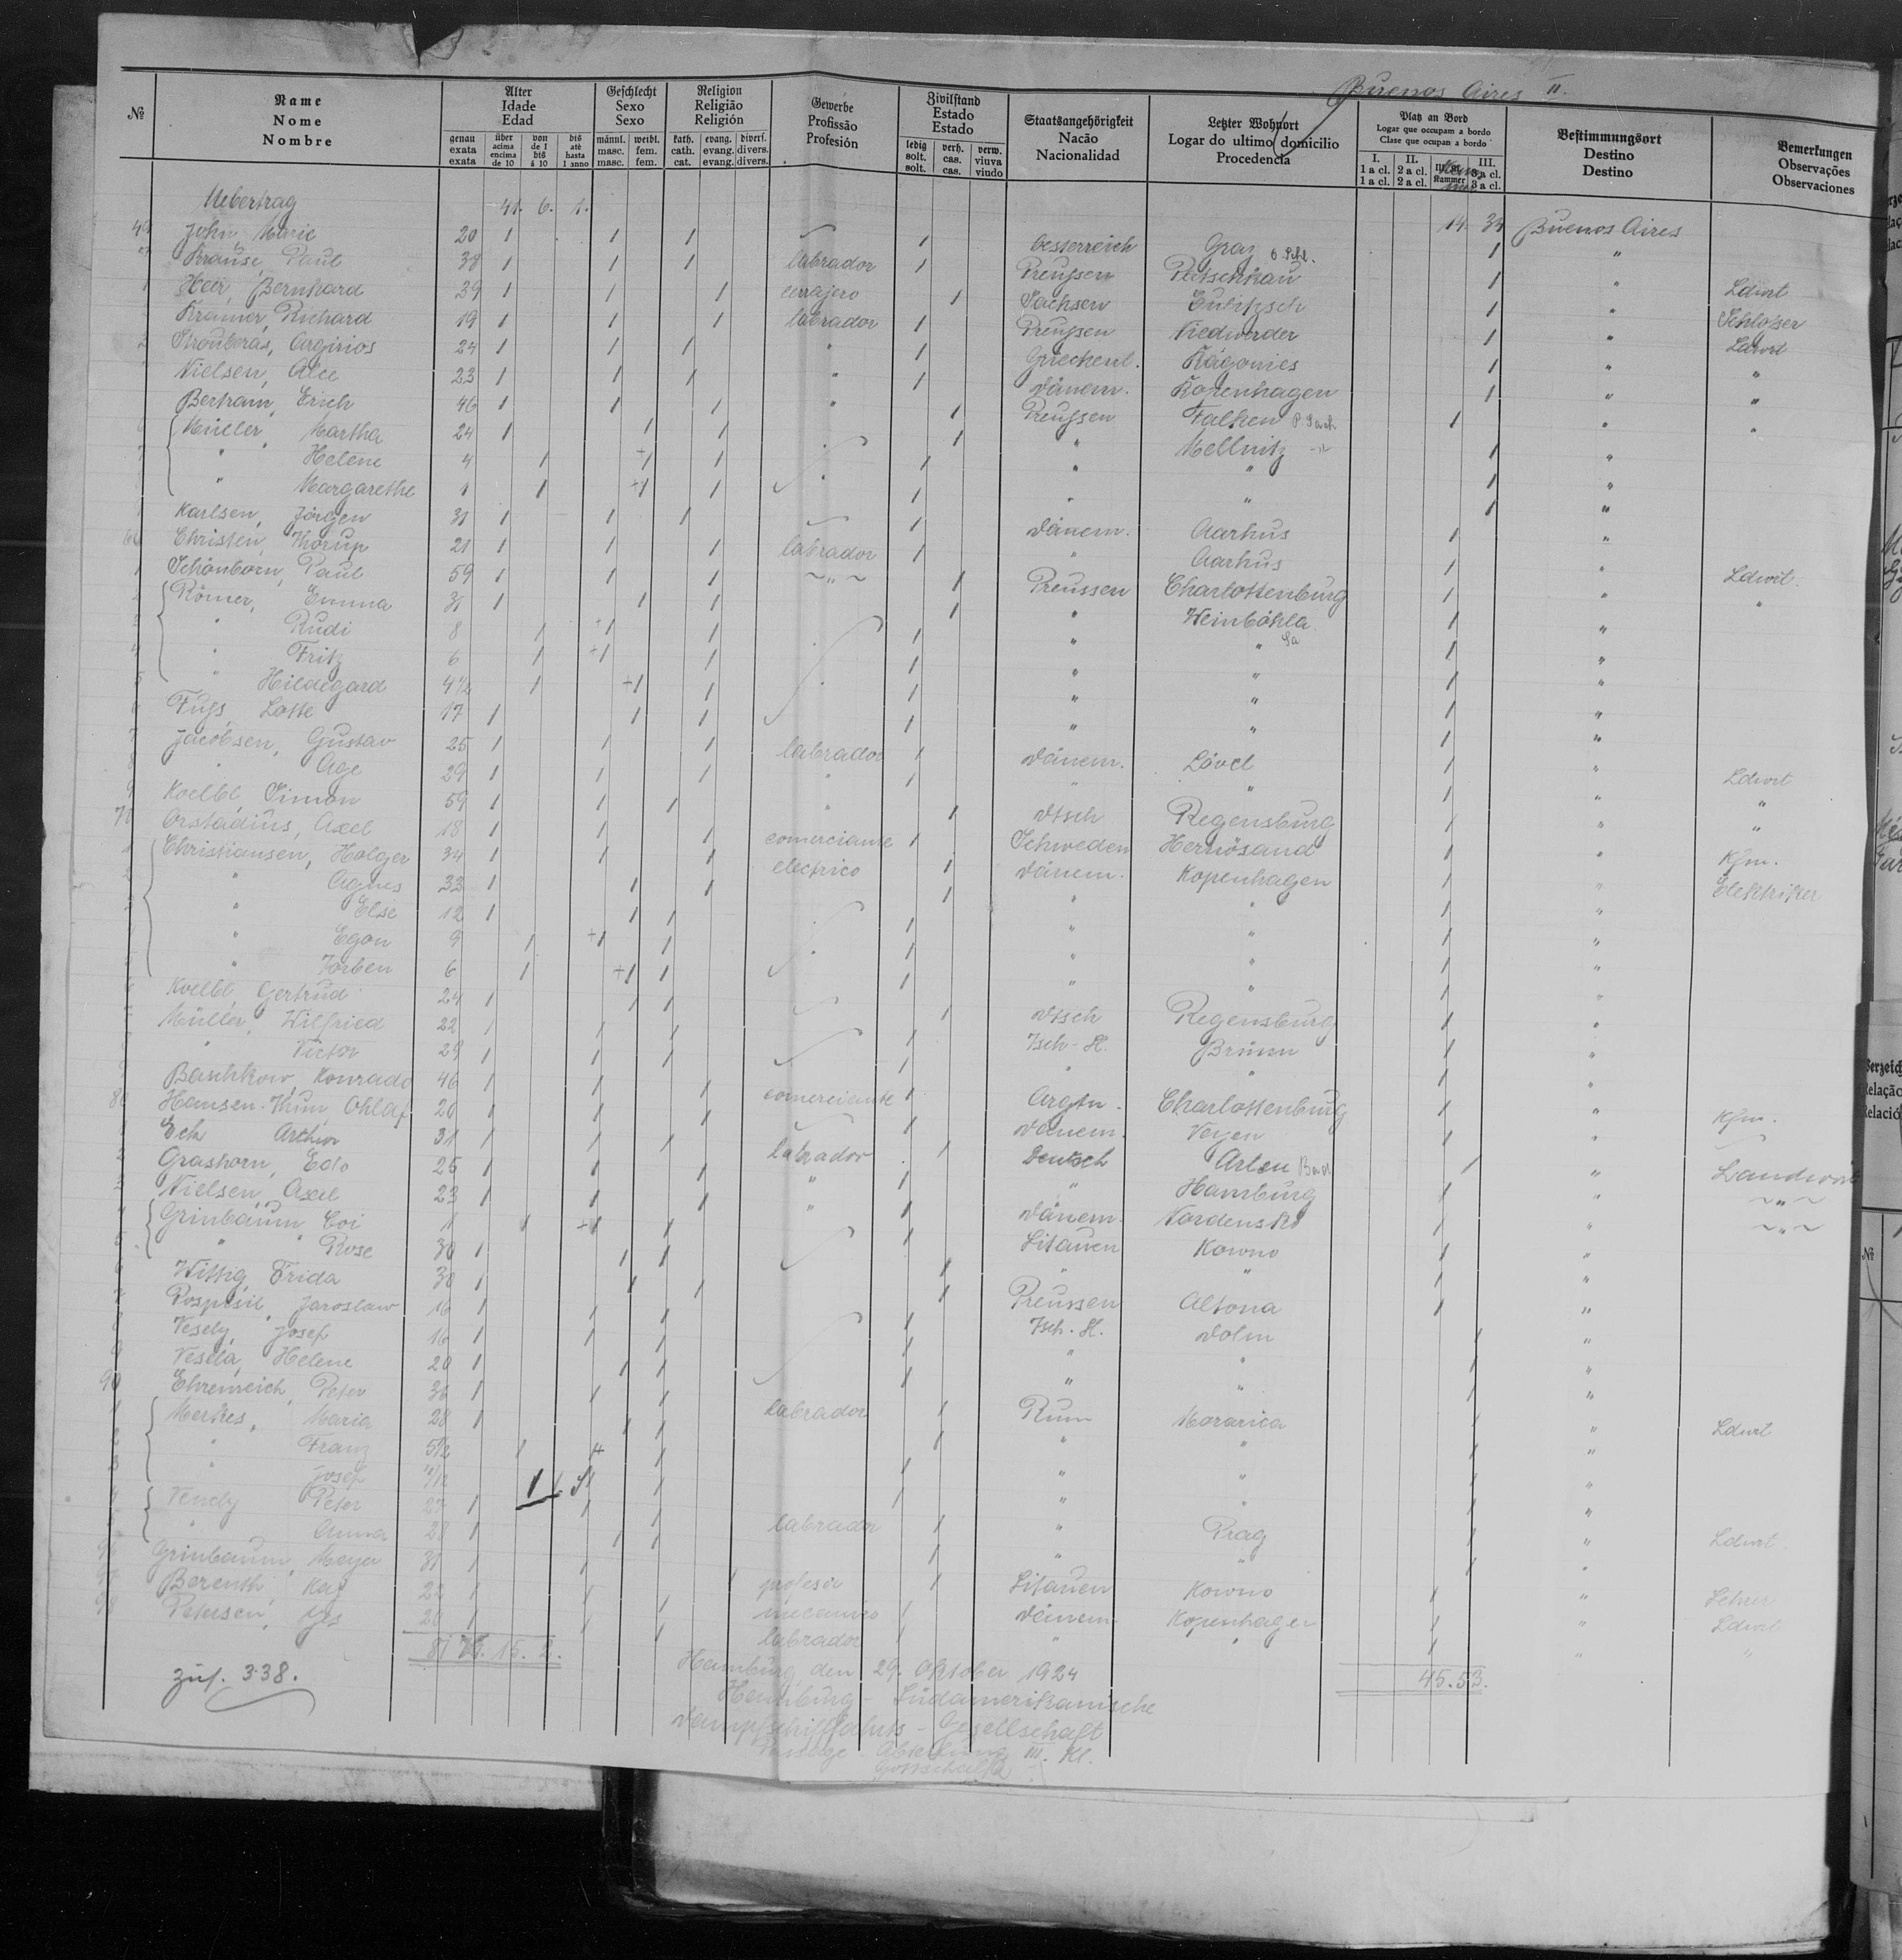 Buenos Aires II.
№ Name Nome Nombre
Alter Idade Edad
genau exata exata
über acima encima de 10
von de 1 bis á 10
bis até hasta 1 anno
Geschlecht Sexo Sexo
männl. masc. masc.
weibl. fem. fem.
Religion Religião Religión
kath. cath. cat.
evang. evang. evang.
divers. divers. divers.
Gewerbe Profissão Profesión
Zivilstand Estado Estado
ledig solt. solt.
verh. cas. cas.
verw. viuva viudo
Staatsangehörigkeit Nacão Nacionalidad
Letzter Wohnort Logar do ultimo domicilio Procedencia
Platz an Bord Logar que occupam a bordo Clase que ocupan a bordo
I. 1 a cl. 1 a cl.
II. 2 a cl. 2 a cl.
Kammer
III. 3 a cl. 3 a cl.
Bestimmungsort Destino Destino
Bemerkungen Observações Observaciones
Uebertrag 41. 6. 1. 14 34 Buenos Aires
John Marie 20 1 1 1 1 Oesterreich Graz 1 "
Krause, Paul 38 1 1 1 labrador 1 Preußen O. Schl. 1 " Ldwrt
1 Heer, Bernhard 39 1 1 1 cerrajero 1 Sachsen 1 " Schlosser
Kramer, Richard 19 1 1 1 labrador 1 Preußen Niedwerder 1 " Ldwrt
Argirios 24 1 1 1 " 1 Griechenl. 1 " "
Nielsen, 23 1 1 1 " 1 Dänem. Kopenhagen 1 " "
Bertram, Erich 46 1 1 1 " 1 Preußen Falken P. Sach 1 " "
Müller, Martha 24 1 1 1 1 " Mellnitz 1 "
" Helene 4 1 +1 1 1 " " 1 "
" Margarethe 1 1 +1 1 1 " " 1 "
Karlsen, Jörgen 31 1 1 1 1 Dänem. Aarhus 1 "
60 Christen, Thorup 21 1 1 1 labrador 1 " Aarhus 1 " Ldwrt.
1 Schönborn, Paul 59 1 1 1 ~"~ 1 Preussen Charlottenburg 1 " "
2 Römer, Emma 31 1 1 1 1 " Weinböhla Sa 1 "
3 " Rudi 8 1 +1 1 1 " " 1 "
4 " Fritz 6 1 +1 1 1 " " 1 "
5 " Hildegard 4½ 1 +1 1 1 " " 1 "
6 Lotte 17 1 1 1 1 " " 1 "
7 Jacobsen, Gustav 25 1 1 1 labrador 1 Dänem. Lövel 1 " Ldwrt
8 " Age 29 1 1 1 " 1 " " 1 " "
9 Koelbl, Simon 59 1 1 1 " 1 Dtsch Regensburg 1 " "
70 Orstadius, Axel 18 1 1 1 comerciante 1 Schweden Hernösand 1 " Kfm.
1 Christiansen, Holger 34 1 1 1 electrico 1 Dänem. Kopenhagen 1 " Elektriker
2 " Agnes 33 1 1 1 1 " " 1 "
3 " Else 12 1 1 1 1 " " 1 "
" Egon 9 1 +1 1 1 " " 1 "
5 " Torben 6 1 +1 1 1 " " 1 "
6 Koelbl, Gertrud 24 1 1 1 1 Dtsch Regensburg 1 "
Müller, Wilfried 22 1 1 1 1 Tsch-Sl. Brünn 1 "
" Victor 29 1 1 1 1 " " 1 "
Baschkow, Konrado 46 1 1 1 comerciante 1 Argtn. Charlottenburg 1 " Kfm.
80 Hansen-Thun, Ohlaf 20 1 1 1 1 Dänem. Vejen 1 "
Eck Arthur 31 1 1 1 labrador 1 Deutsch Arlen Bad 1 " Landwirt
2 Grashorn, Edo 26 1 1 1 " 1 " Hamburg 1 " ~"~
3 Nielsen, Axel 23 1 1 1 " 1 Dänem. 1 " ~"~
4 Grinbaum, 11 1 +1 1 1 Litauen Kowno 1 "
5 " Rose 30 1 1 1 1 " " 1 "
6 Wittig, Frida 30 1 1 1 1 Preussen Altona 1 "
7 Pospisil, Jaroslaw 16 1 1 1 1 Tsch.Sl. Doln 1 "
8 Vesely, Josef 16 1 1 1 1 " " 1 "
9 Vesela, Helene 20 1 1 1 1 " " 1 "
90 Ehrenreich, Peter 36 1 1 1 labrador 1 Rum Morarica 1 " Ldwrt
1 Merkes, Maria 28 1 1 1 1 " " 1 "
2 " Franz 5½ 1 1 1 1 " " 1 "
3 " Josef 11/12 1 1 1 1 " " 1 "
4 Vendy Peter 27 1 1 1 labrador 1 " Prag 1 " Ldwrt.
" Anna 28 1 1 1 1 " " 1 "
96 Grinbaum, Meyer 31 1 1 1 profesor 1 Litauen Kowno 1 " Lehrer
97 Berenth, Kaj 22 1 1 1 mecanico 1 Dänem. Kopenhagen 1 " Ldwrt
98 Petersen, 20 1 1 1 labrador 1 " " 1 " "
81 15. 2. 45. 53.
zus. 338.
Hamburg, den 29. Oktober 1924
Hamburg-Südamerikanische
Dampfschifffahrts-Gesellschaft
Passage Abteilung III. Kl.